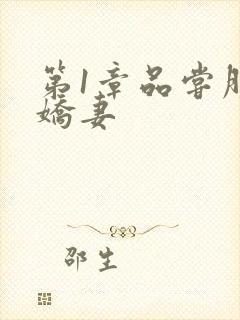 第1章品尝
娇妻
邵生